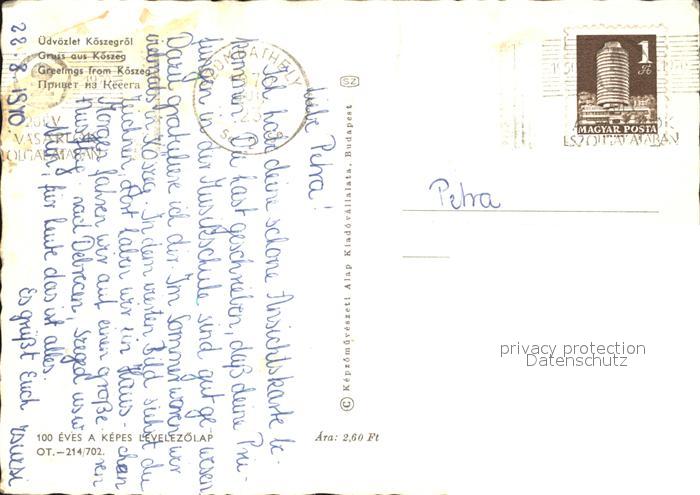 Üdvözlet Kőszegről
Gruss aus Kőszeg
Greetings from Kőszeg
Привет из Кёсега
22.8.1970
Liebe Petra!
Ich habe deine schöne Ansichtskarte be-
kommen. Du hast geschrieben, daß deine Prü-
fungen in der Musikschule sind gut ge-
Dazu gratuliere ich dir. Im Sommer waren wir
vielmals in Köszeg. In dem ersten Bild siehst du
Dort haben wir ein Haus-chen
Morgen fahren wir auf einen große-ren
Ausflug: nach Debrecen, Szeged usw
Nun, für heute das ist alles.
Es grüßt Euch
100 ÉVES A KÉPES LEVELEZŐLAP
OT.—214/702.
Ára: 2,60 Ft
© Képzőművészeti Alap Kiadóvállalata, Budapest
SZ
SZOMBATHELY
VÁSÁRLÓK
SZOLGÁLATÁBAN
1
Ft
MAGYAR POSTA
SZOLGÁLATÁBAN
Petra
privacy protection
Datenschutz